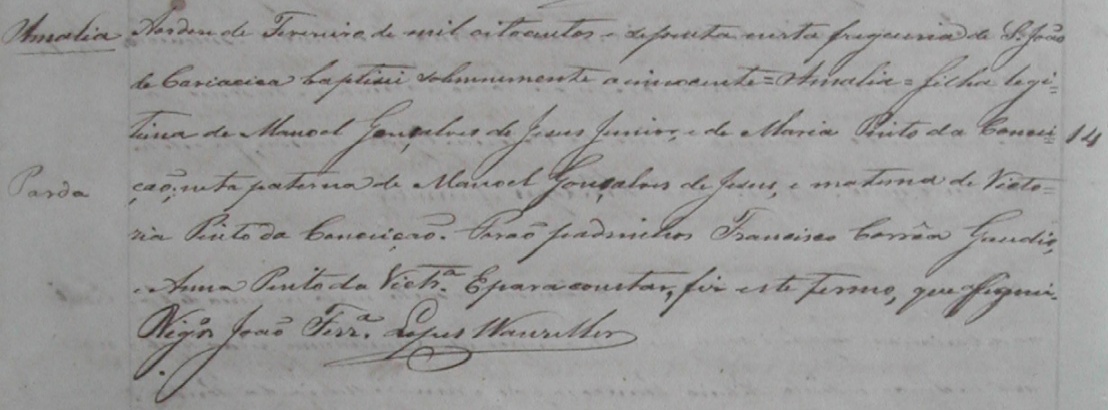 Amalia
Aos dez de Fevereiro de mil oitocentos e setenta nesta freguezia de S. João
de Cariacica baptisei solemnemente a innocente = Amalia = filha legi=
tima de Manoel Gonçalves de Jesus Junior, e de Maria Pinto da Concei=
14
Parda
ção; neta paterna de Manoel Gonçalves de Jesus, e materna de Victo=
ria Pinto da Conceição. Forão padrinhos Francisco Corrêa Gaudio,
e Anna Pinto da Vict.ª E para constar, fiz este termo, que assignei.
Vigr.º João Ferr.ª Lopes